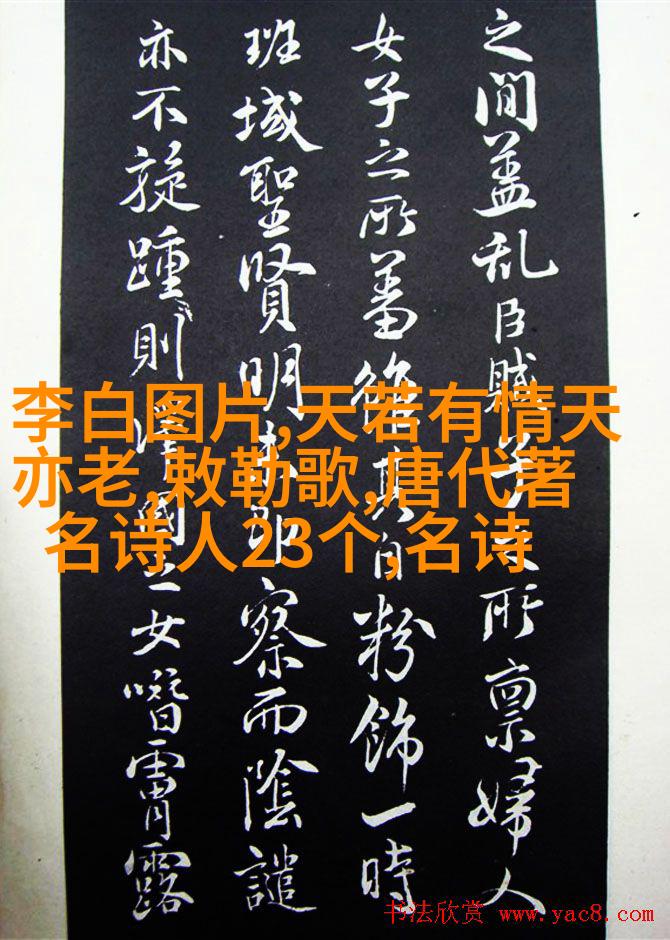 之間盖乱臣賊所禀婦人
女子之所蓄其自粉飾一時
班域聖賢明察而陰譴
亦不旋踵則國女霄露
李白图片,天若有情天
亦老,敕勒歌,唐代著
名诗人23个,名诗
书法欣赏 www.yac8.com